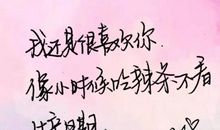 我还是很喜欢你
像小时候吃辣条不看